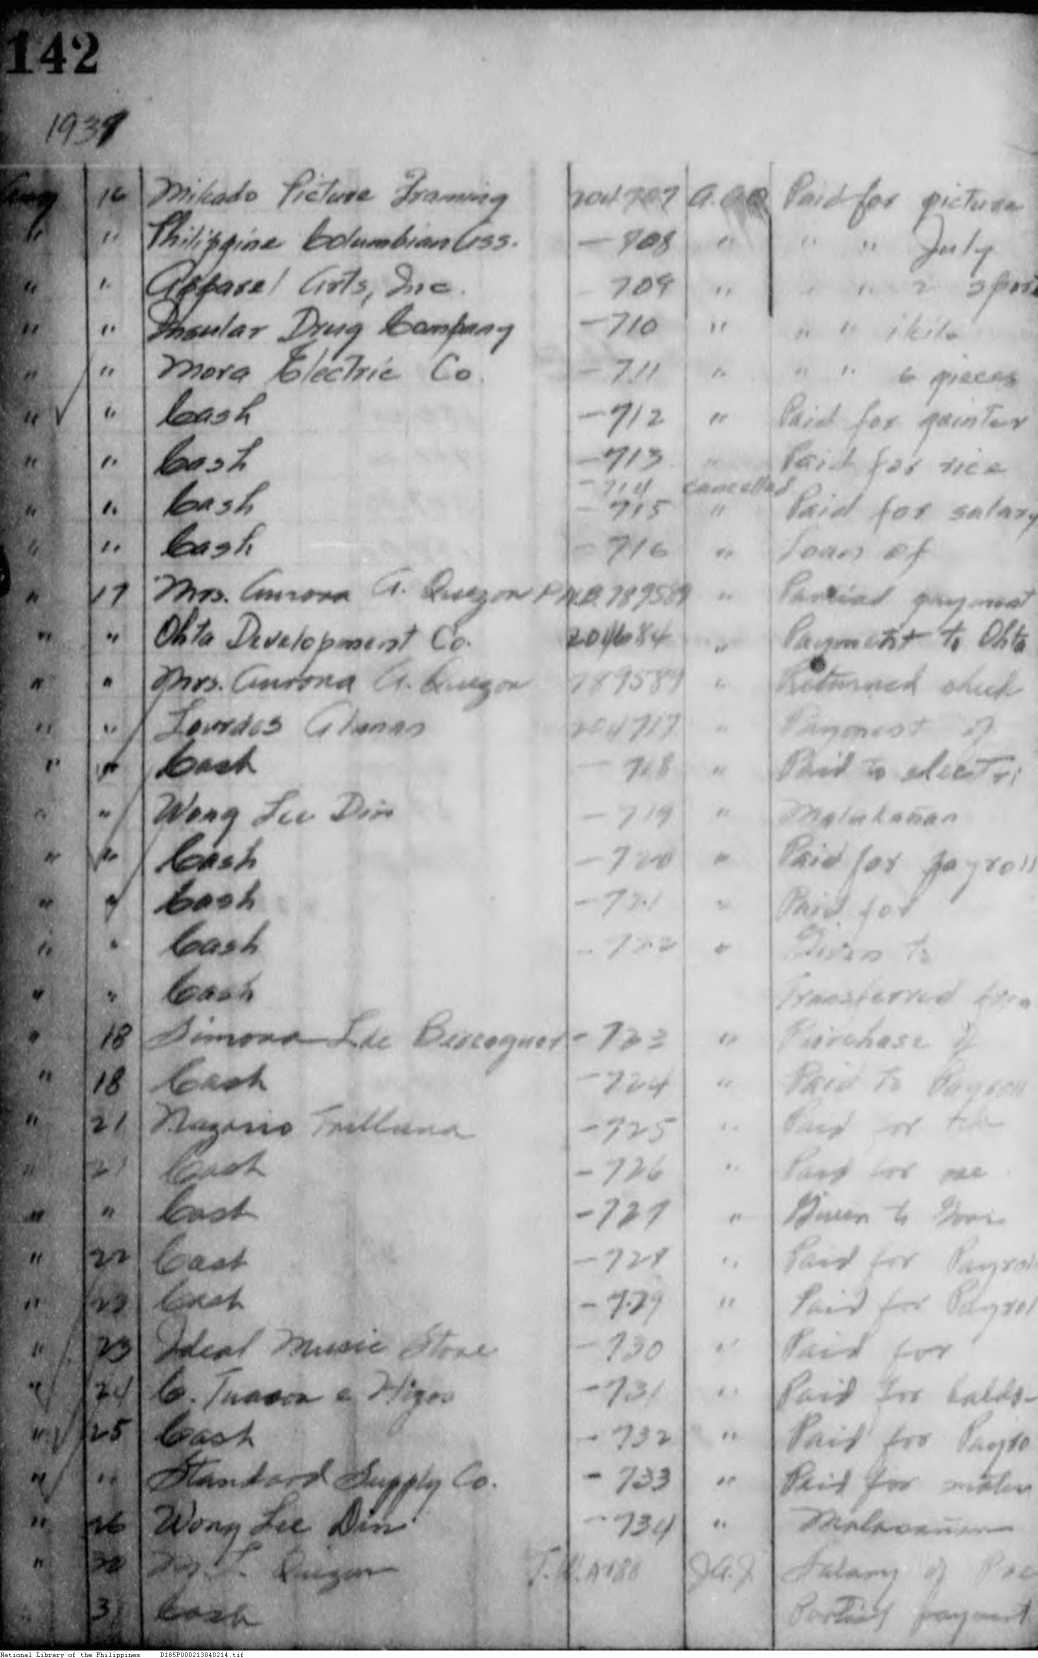 142
1937
Aug 16 Mikado Picture Framing 204707 A.A.Q. Paid for picture
" " Philippine Columbian Ass. - 708 " " " July
" " Apparel Arts, Inc. - 709 " " " 2 sport
" " Insular Drug Company - 710 " " " 1 kilo
" " Mora Electric Co. - 711 " " " 6 pieces
" " Cash - 712 " Paid for painter
" " Cash - 713 " Paid for rice
- 714 cancelled
" " Cash - 715 " Paid for salary
" " Cash - 716 " Loan of
" 17 Mrs. Aurora A. Quezon P.N.B. 789589 " Partial payment
" " Ohta Development Co. 204684 " Payment to Ohta
" " Mrs. Aurora A. Quezon 789589 " Returned check
" " Lourdes Alunan 204717 " Payment of
" " Cash - 718 " Paid to electri
" " Wong Lee Din - 719 " Malakañan
" " Cash - 720 " Paid for payroll
" " Cash - 721 " Paid for
" " Cash - 722 " Given to
" " Cash Transferred from
" 18 Simona Lde - 723 " Purchase of
" 18 Cash - 724 " Paid to Payroll
" 21 Nazario Trillana - 725 " Paid for
" 21 Cash - 726 " Paid for
" " Cash - 727 " Given to
" 22 Cash - 728 " Paid for Payrol
" 23 Cash - 729 " Paid for Payrol
" 23 Ideal Music Store - 730 " Paid for
" 24 C. Tuason e Hijos - 731 " Paid for
" 25 Cash - 732 " Paid for Payro
" " Standard Supply Co. - 733 " Paid for mater
" 26 Wong Lee Din - 734 " Malacañan
" 30 M. L. Quezon J.A.J. Salary of
31 Cash Partial payment
National Library of the Philippines D185P000213040214.tif